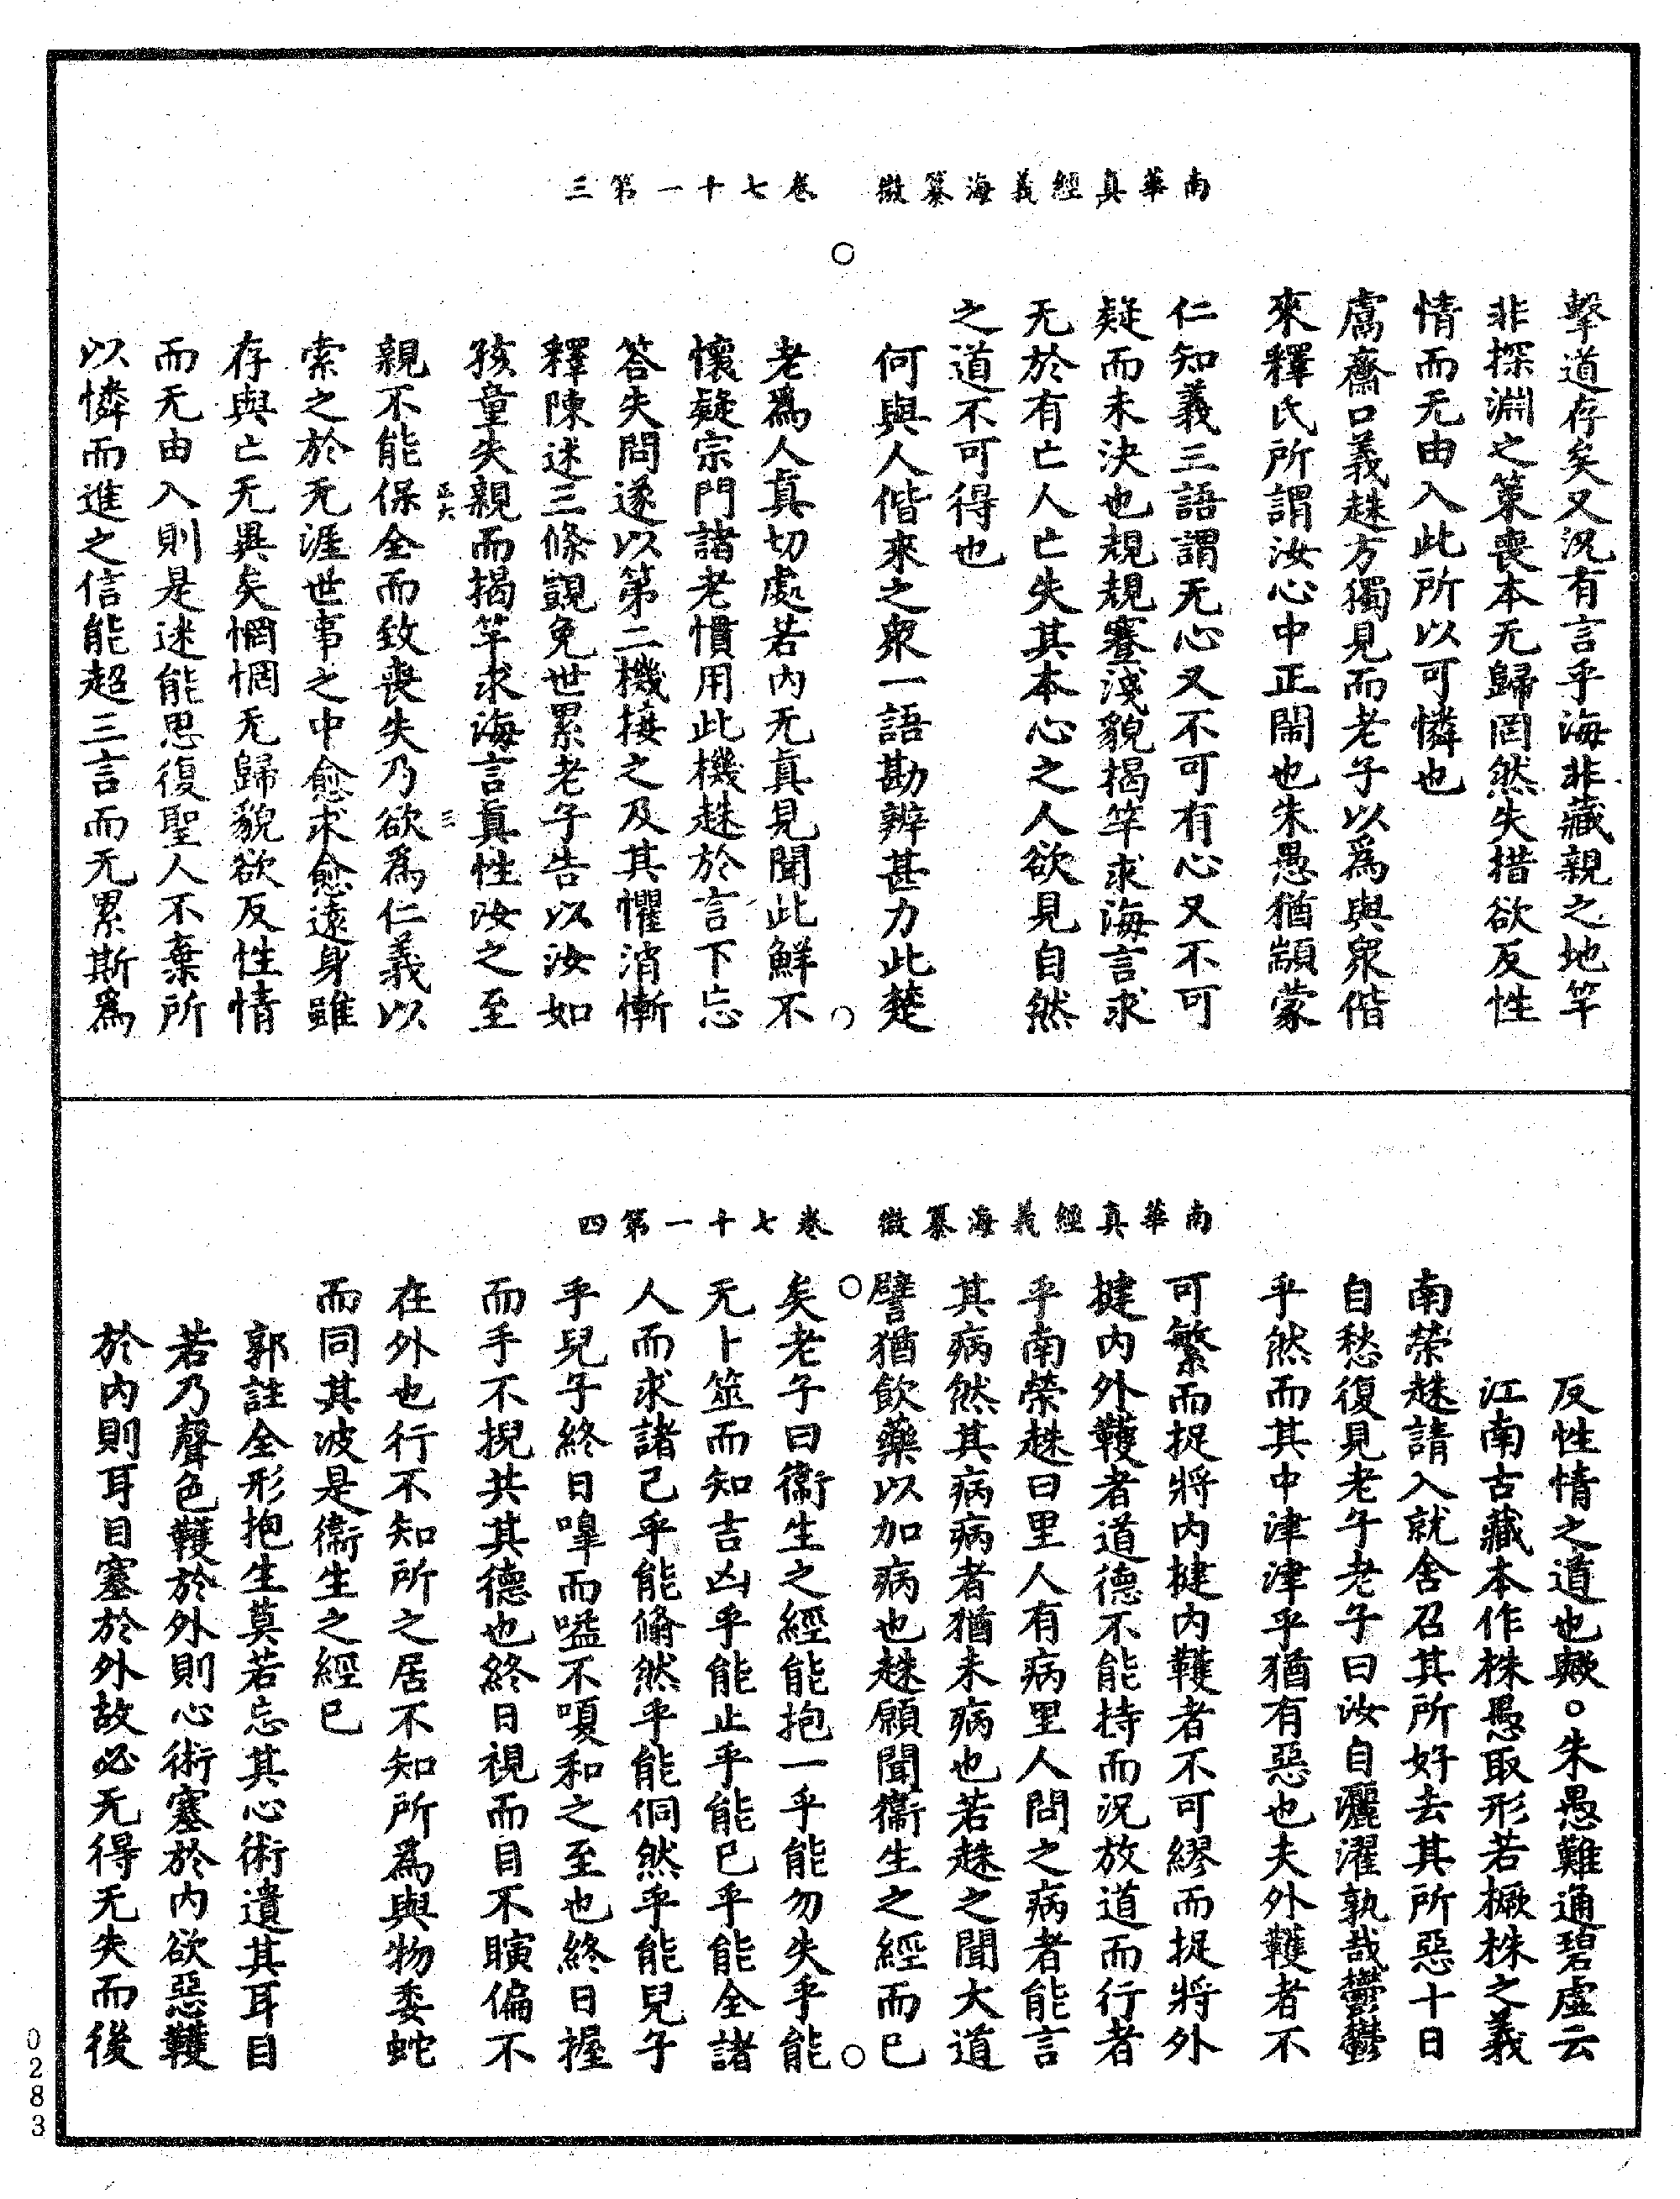 南華真經義海纂微　卷七十一第三
擊道存矣又況有言乎海非藏親之地竿
非探淵之策喪本无歸罔然失措欲反性
情而无由入此所以可憐也
鬳齋口義趎方獨見而老子以爲與衆偕
來釋氏所謂汝心中正鬧也朱愚猶顓蒙
仁知義三語謂无心又不可有心又不可
疑而未決也規規蹇淺貌揭竿求海言求
无於有亡人亡失其本心之人欲見自然
之道不可得也
何與人偕來之衆一語勘辨甚力此楚
老爲人真切處若內无真見聞此鮮不
懷疑宗門諸老慣用此機趎於言下忘
答失問遂以第二機接之及其懼消慚
釋陳述三條覬免世累老子告以汝如
孩童失親而揭竿求海言真性汝之至
親不能保全而致喪失乃欲爲仁義以
索之於无涯世事之中愈求愈遠身雖
存與亡无異矣惘惘无歸貌欲反性情
而无由入則是迷能思復聖人不棄所
以憐而進之信能超三言而无累斯爲
南華真經義海纂微　卷七十一第四
反性情之道也歟○朱愚難通碧虛云
江南古藏本作株愚取形若橛株之義
南榮趎請入就舍召其所好去其所惡十日
自愁復見老子老子曰汝自灑濯孰哉鬱鬱
乎然而其中津津乎猶有惡也夫外韄者不
可繁而捉將內揵內韄者不可繆而捉將外
揵內外韄者道德不能持而況放道而行者
乎南榮趎曰里人有病里人問之病者能言
其病然其病病者猶未病也若趎之聞大道
譬猶飲藥以加病也趎願聞衞生之經而已
矣老子曰衞生之經能抱一乎能勿失乎能
无卜筮而知吉凶乎能止乎能已乎能全諸
人而求諸己乎能翛然乎能侗然乎能兒子
乎兒子終日嘷而嗌不嗄和之至也終日握
而手不掜共其德也終日視而目不瞚偏不
在外也行不知所之居不知所爲與物委蛇
而同其波是衞生之經已
郭註全形抱生莫若忘其心術遺其耳目
若乃聲色韄於外則心術塞於內欲惡韄
於內則耳目塞於外故必无得无失而後
0283